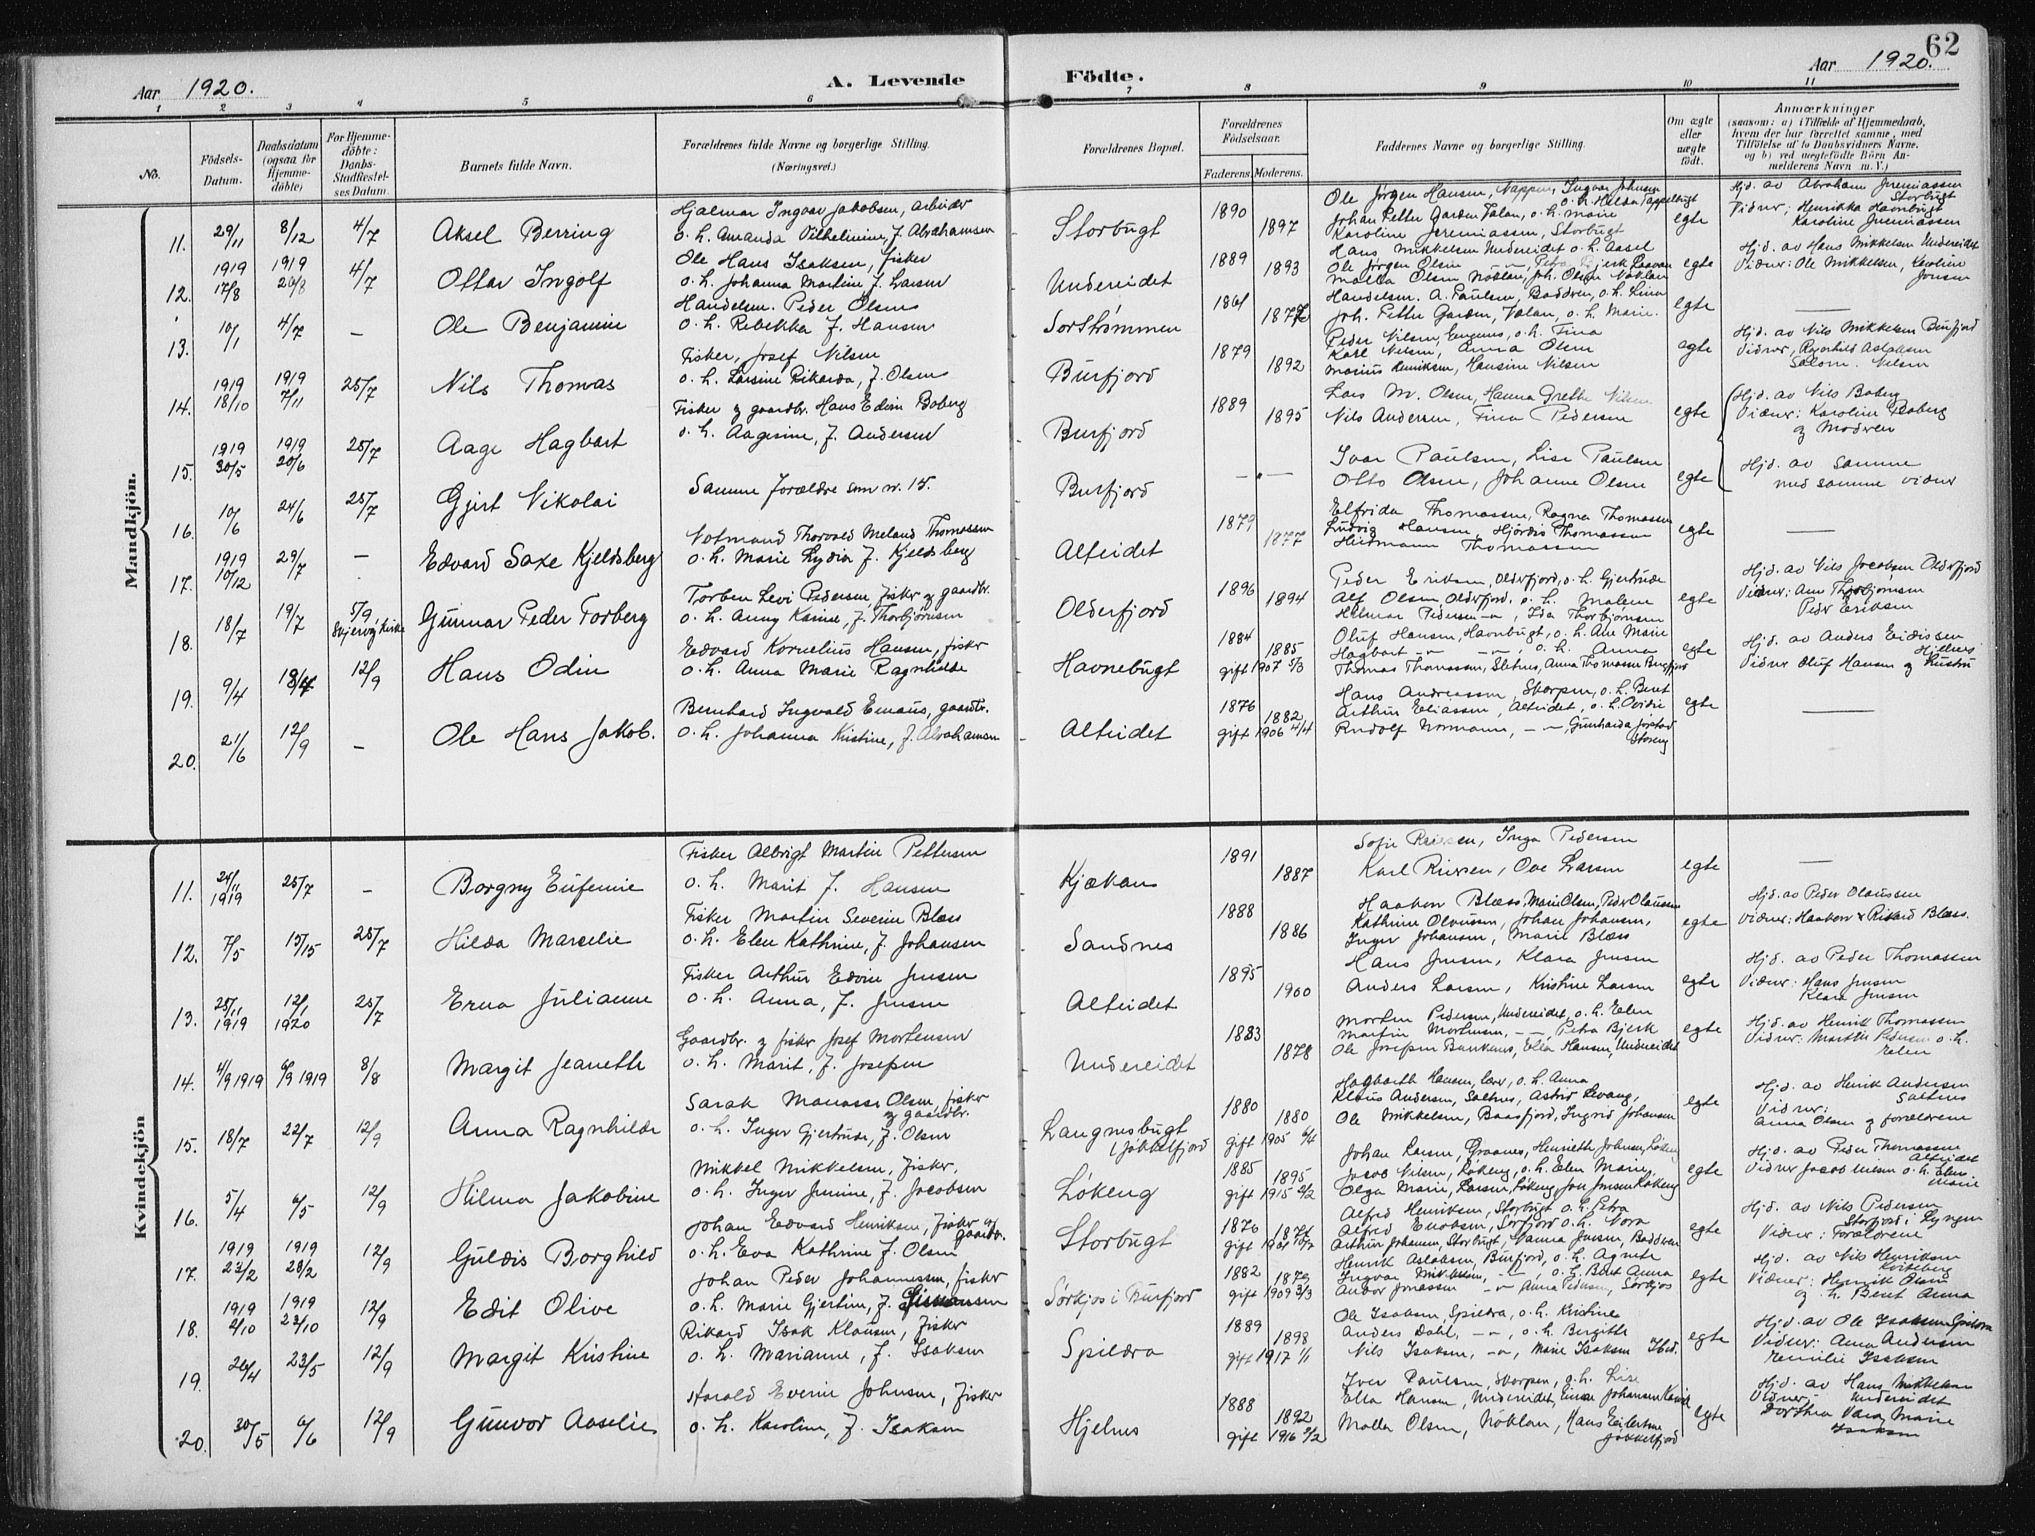 62
Aar 1920.
A. Levende Födte.
Aar 1920.
1 2 3 4 5 6 7 8 9 10 11
No.
Födsels-Datum.
Daabsdatum (ogsaa for Hjemme-döbte)
For Hjemme-döbte: Daabs-Stadfæstel-ses Datum.
Barnets fulde Navn.
Forældrenes fulde Navne og borgerlige Stilling.
(Næringsvei.)
Forældrenes Bopæl.
Forældrenes Födselsaar.
Faderens. Moderens.
Faddernes Navne og borgerlige Stilling.
Om ægte eller uægte födt.
Anmærkninger
(saasom: a) i Tilfælde af Hjemmedaab,
hvem der har forrettet samme, med
Tilföielse af to Daabsvidners Navne.
og b) ved uegtefödte Börn An-
melderens Navn m. V.)
Mandkjön.
11. 29/11 1919 8/12 1919 4/7 Aksel Berring
Hjalmar Ingvar Jakobsen, arbeider
o. h. Amanda Vilhelmine, f. Abrahamsen
Storbugt 1890 1897
Ole Jörgen Hansen, Ingvar Johnsen
Johan Petter Garden Valan, o. h. Marie
Karoline Jeremiassen, Storbugt
egte
Hjd. av Abraham Jeremiassen Storbugt
Vidner; Henrikka Havnbugt
Karoline Jeremiassen
12. 17/8 20/8 4/7 Ottar Ingolf
Ole Hans Isaksen, fisker
o. h. Johanna Martine f. Larsen
Undereidet 1889 1893
Hans Mikkelsen Undereidet o. h. Aasel
Ole Jörgen Olsen
Malla Olsen Nöklan, Joh. Olsen Nöklan
egte
Hjd. av Hans Mikkelsen Undereidet
Vidner: Ole Mikkelsen, Karoline Jensen
13. 10/1 4/7 – Ole Benjamin
Handelsm. Peder Olsen
o. h. Rebekka f. Hansen
Sorströmmen 1861
Handelsm. A. Paulsen, Badderen, o. h. Lina
Joh. Petter Garden, Valan, o. h. Marie.
egte
14. 1919 18/10 1919 7/11 25/7 Nils Thomas
Fisker, Josef Nilsen
o. h. Larsine Rikarda, f. Olsen
Burfjord 1879 1892
Peder Nilsen, o. h. Fina
Karl Nilsen, Anna Olsen
Marius Henriksen, Hansine Nilsen
egte
Hjd. av Nils Mikkelsen Burfjord
Vidner, Ragnhild Aslaksen
Salom. Nilsen
15. 1919 30/5 1919 20/6 25/7 Aage Hagbart
Fisker & gaardbr. Hans Edvin Boberg
o. h. Aagesine, f. Andersen
Burfjord 1889 1895
Lars M. Olsen, Hanna Grethe Nilsen
Nils Andersen, Fina Pedersen
egte
Hjd. av Nils Boberg
Vidner: Karoline Boberg
og Modren
16. 10/6 24/6 25/7 Gjert Nikolai
Samme forældre som nr. 15.
Burfjord – " –
Ivar Paulsen, Lise Paulsen
Otto Olsen, Johanne Olsen
egte
Hjd. av samme
med samme vidner
17. 1919 10/12 29/7 – Edvard Saxe Kjeldsberg
Notmand Thorvald Meland Thomassen
o. h. Marie Lydia f. Kjeldsberg
Alteidet 1879 1877
Elfrida Thomassen, Ragna Thomassen
Ludvig Hansen, Hjördis Thomassen
Thomassen
egte
18. 18/7 19/7 5/9, Skjervøy Kirke Gunnar Peder Torberg
Torben Levi Pedersen, fisker & gaardbr.
o. h. Anny Karine, f. Thorbjörnsen
Olderfjord 1896 1894
Peder Eriksen, Olderfjord, o. h. Gjertrude
Alf Olsen Olderfjord. o. h. Malene
Helmer Pedersen – " – Ida Thorbjörnsen
egte
Hjd. av Nils Jacobsen Olderfjord
Vidner: Ane Thorbjörnsen
Peder Eriksen
19. 9/4 18/4 12/9 Hans Odin
Edvard Kornelius Hansen, fisker
o. h. Anna Marie Ragnhilde
Havnebugt 1884 1885
gift 1907 5/3
Oluf Hansen, Havnbugt, o. h. Ane Marie
Hagbart – " – – " –, o. h. Anna
Thomas Thomassen, Sletnes, Anna Thomassen Burfjord
egte
Hjd. av Anders Eidissen Hjelnes
Vidner Oluf Hansen & Hustru
20. 21/6 12/9 – Ole Hans Jakob.
Bernhard Ingvald Emaus, gaardbr.
o. h. Johanna Kristine, f. Abrahamsen
Alteidet 1876 1882
gift 1906 4/4
Hans Andreassen, Skorpen, o. h. Beret
Arthur Eliassen, Alteidet, o. h. Ovidie
Rudolf Normann, – " – Gunharda
egte
Kvindekjön
11. 24/11 1919 25/7 – Borgny Eufemie
Fisker Albrigt Martin Pettersen
o. h. Marit f. Hansen
Kjækan 1891 1887
Sofie Riersen, Inga Pedersen
Karl Riersen, Ove Larsen
egte
12. 7/5 15/15 25/7 Hilda Marselie
Fisker Martin Severin Blæss
o. h. Elen Kathrine, f. Johansen
Sandnes 1888 1886
Haakon Blæss, Marie Olsen, Peder Olaussen
Kathrine Olaussen, Johan Johansen,
Inger Johansen, Marie Blæss
egte
Hjd. av Peder Olaussen
Vidner: Haakon & Rikard Blæss.
13. 25/11 1919 12/1 1920 25/7 Erna Julianne
Fisker Arthur Edvin Jensen
o. h. Anna, f. Jensen
Alteidet 1895 1900
Hans Jensen, Klara Jensen
Anders Larsen, Kristine Larsen
egte
Hjd. av Peder Thomassen
Vidner: Hans Jensen
Klara Jensen
14. 4/9 1919 6/9 1919 8/8 Margit Jeanette
Gaardbr. & fisker Josef Mortensen
o. h. Marit, f. Josefsen
Undereidet 1883 1878
Morten Pedersen, Undereidet, o. h. Elen
Martin Mortensen, – " – Petra Bjerk
Ole Josefsen, Ella Hansen, Undereidet
egte
Hjd. av Henrik Thomassen
Vidner: Morten Pedersen o. h. Elen
15. 18/7 22/7 12/9 Anna Ragnhilde
Sarak Manasse Olsen, fisker & gaardbr.
o. h. Inger Gjertrude, f. Olsen
Langnesbugt i Jökkelfjord 1880 1880
gift 1905 6/4
Hagbarth Hansen, o. h. Anna
Klaus Andersen, Saltnes, Astrid Levang,
Ole Mikkelsen, Baasfjord, Ingrid Johansen
egte
Hjd. av Henrik Andersen Saltnes
Vidner:
Anna Olsen & forældrene
16. 5/4 6/5 12/9 Hilma Jakobine
Mikkel Mikkelsen, fisker,
o. h. Inger Jensine, f. Jacobsen
Lökeng 1885 1895
gift 1915
Johan Larsen, Graanes, Henriette Johnsen, Lökeng
Jacob Nilsen, Lökeng, o. h. Elen Marie,
Olga Marie, Larsen, Lökeng, Jon Jensen Lökeng
egte
Hjd. av Peder Thomassen Alteidet
Vidner Jacob Nilsen o. h. Elen Marie
17. 1919 23/2 1919 28/2 12/9 Guldis Borghild
Johan Edvard Henriksen, fisker og gaardbr.
o. h. Eva Kathrine f. Olsen
Storbugt 1876 1877
gift 1901
Alfred Henriksen, Storbugt o. h. Petra
Alfred Jacobsen, Sörfjord o. h. Nora
Arthur Johansen, Storbugt, Nanna Jensen, Badderen
egte
Hjd. av Nils Pedersen
Storfjord i Lyngen
Vidner: Forældrene
18. 1919 2/10 1919 23/10 12/9 Edit Olive
Johan Peder Johannessen, fisker
o. h. Marie Gjertine, f. Simonsen
Sörkjos i Burfjord 1882 1879
gift 1909 3/3
Henrik Aslaksen, Burfjord, o. h. Agnete
Ingvar Mikkelsen, – " –, o. h. Beret Anna
Andor Jonassen – " – Anna Pedersen, Sörkjos
egte
Hjd. av Nils Henriksen Kvitberg
Vidner: Henrik Olsen
og h. Beret Anna
19. 26/4 23/5 12/9 Margit Kristine
Rikard Isak Klausen, fisker
o. h. Marianne, f. Isaksen
Spildra 1889 1898
gift 1917 1/1
Ole Isaksen, Spildra, o. h. Kristine
Anders Dahl, – " –, o. h. Birgitte
Nils Isaksen, – " –, Marie Isaksen Ibid.
egte
Hjd. av Ole Isaksen Spildra
Vidner: Anna Andersen
Emilie Isaksen
20. 30/5 6/6 12/9 Gunvor Aaselie
Harald Everin Johnsen, fisker
o. h. Karoline, f. Isaksen
Hjelnes 1888 1892
gift 1916
Iver Paulsen, Skorpen, o. h. Lise
Ella Hansen, Undereidet, Einar Johansen
Malla Olsen, Nöklan, Hans Eilertsen Jökkelfjord
egte
Hjd. av Hans Mikkelsen Undereidet
Vidner,
Dorthea Vara, Marie Isaksen